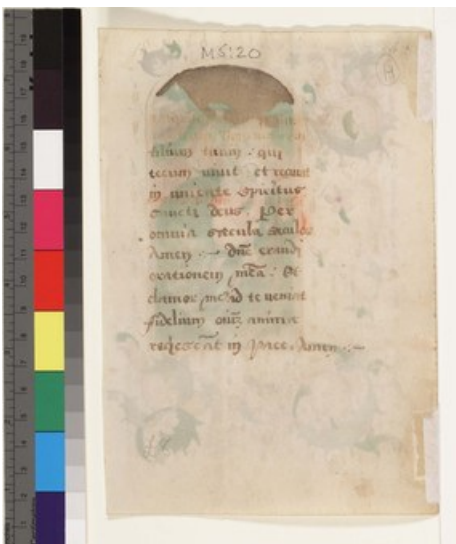 M5:20
filium tuum : qui
tecum uiuit et regnat
in unitate spiritus
sancti deus. Per
omnia secula seculoꝝ
Amen :~ dne exaudi
orationem mea : Et
clamor, me9 ad te ueniat
fidelium oium anima
requescat in pace. Amen :~